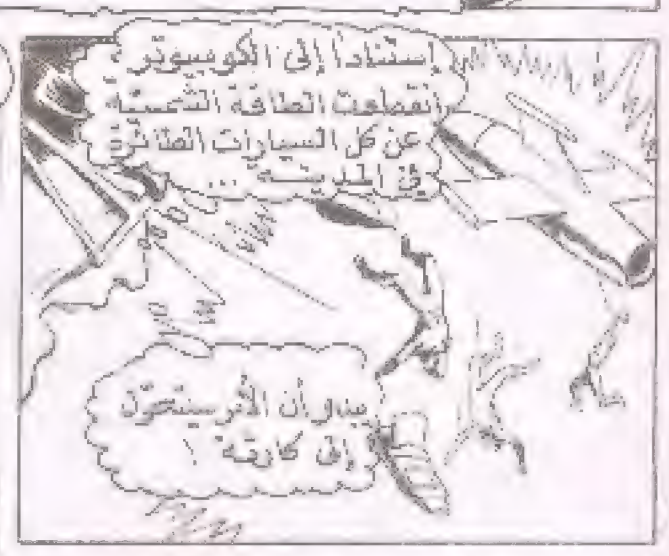 إستنادا إلى الكومبيوتر،
انقطعت الطاقة الشمسية
عن كل السيارات الطائرة
في المدينة ...
يبدو أن الأمر سيتحول
إلى كارثة !